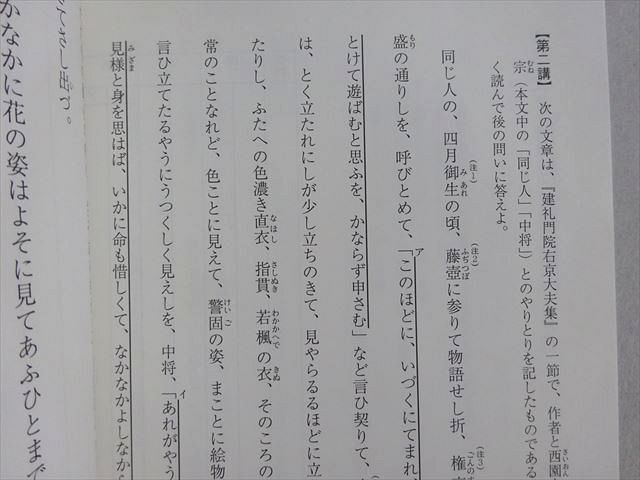 【第二講】 次の文章は、『建礼門院右京大夫集』の一節で、作者と西園
宗(本文中の「同じ人」「中将」)とのやりとりを記したものである
く読んで後の問いに答えよ。
同じ人の、四月御生の頃、藤壺に参りて物語せし折、権
盛の通りしを、呼びとめて、「このほどに、いづくにてまれ、
とけて遊ばむと思ふを、かならず申さむ」など言ひ契りて、
は、とく立たれにしが少し立ちのきて、見やらるるほどに立
たりし、ふたへの色濃き直衣、指貫、若楓の衣、そのころの
常のことなれど、色ことに見えて、警固の姿、まことに絵物
言ひ立てたるやうにうつくしく見えしを、中将、「あれがやう
見様と身を思はば、いかに命も惜しくて、なかなかよしなから
てさし出づ。
かなかに花の姿はよそに見てあふひとまで